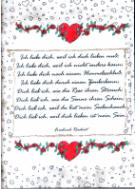 Ich liebe dich, weil ich dich lieben muß;
Ich liebe dich, weil ich nicht anders kann;
Ich liebe dich nach einem Himmelsschluß;
Ich liebe dich durch einen Zauberbann.
Dich lieb' ich, wie die Rose ihren Strauch;
Dich lieb' ich, wie die Sonne ihren Schein;
Dich lieb' ich, weil du bist mein Lebenshauch;
Dich lieb' ich, weil dich lieben ist mein Sein.
Friedrich Rückert